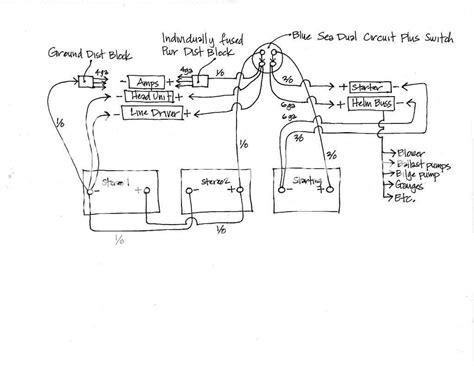 Individually fused
Pwr Dist Block
Blue Sea Dual Circuit Plus Switch
Ground Dist Block
4ga
- Amps +
4ga
1/0
3/0
+ Starter -
- Head Unit +
6ga
+ Helm Buss -
- Line Driver +
6ga
3/0
1/0
1/0
3/0
Blower
Ballast pumps
Bilge pump
Gauges
Etc.
Stereo 1
- +
Stereo 2
- +
Starting
- +
1/0
1/0